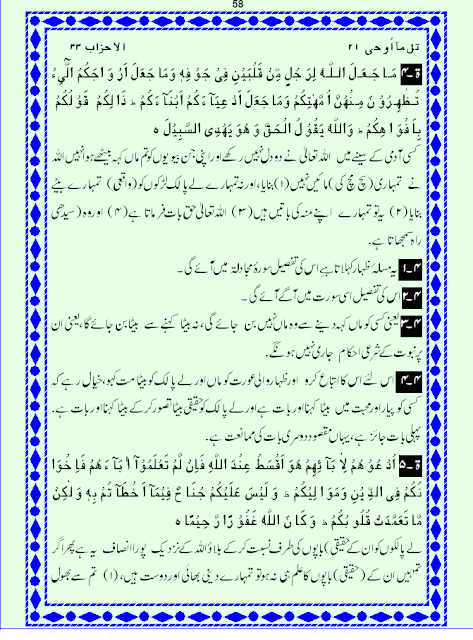 58
تل مآ اُوحی ۲۱ الاحزاب ۳۳
ۃ۔۴ مَا جَعَلَ اللّٰہُ لِرَ جُلٍ مِّنْ قَلْبَیْنِ فِیْ جَوْ فِہٖ وَمَا جَعَلَ اَزْ وَا جَکُمُ الّٰٓیِٔ
تُظٰہِرُوْ نَ مِنْہُنَّ اُمَّہٰتِکُمْ وَمَا جَعَلَ اَدْ عِیَآ ءَکُمْ اَبْنَآ ءَکُمْ ط ذَا لِکُمْ قَوْ لُکُمْ
بِاَ فْوَا ھِکُمْ ط وَاللّٰہُ یَقُوْ لُ الْحَقَّ وَ ھُوَ یَھْدِی السَّبِیْلَ ہ
کسی آدمی کے سینے میں اللہ تعالٰی نے دو دل نہیں رکھے اور اپنی جن بیویوں کو تم ماں کہہ بیٹھے ہو انہیں اللہ
نے تمہاری (سچ مچ کی) مائیں نہیں (۱) بنایا، اور نہ تمہارے لے پالک لڑکوں کو (واقعی) تمہارے بیٹے
بنایا (۲) یہ تو تمہارے اپنے منہ کی باتیں ہیں (۳) اللہ تعالٰی حق بات فرماتا ہے (۴) اور وہ (سیدھی)
راہ سمجھاتا ہے.
۴۔۱ یہ مسئلہ ظہار کہلاتا ہے اس کی تفصیل سورۂ مجادلۃ میں آئے گی۔
۴۔۲ اس کی تفصیل اسی سورت میں آگے آئے گی۔
۴۔۳ یعنی کسی کو ماں کہہ دینے سے وہ ماں نہیں بن جائے گی، نہ بیٹا کہنے سے بیٹا بن جائے گا، یعنی ان
پر نبوت کے شرعی احکام جاری نہیں ہونگے۔
۴۔۴ اس لئے اس کا اتباع کرو اور ظہار والی عورت کو ماں اور لے پالک کو بیٹا مت کہو، خیال رہے کہ
کسی کو پیار اور محبت میں بیٹا کہنا اور بات ہے اور لے پالک کو حقیقی بیٹا تصور کر کے بیٹا کہنا اور بات ہے.
پہلی بات جائز ہے، یہاں مقصود دوسری بات کی ممانعت ہے.
ۃ۔۵ اُدْ عُوْ ھُمْ لِاٰ بَآ ئِہِمْ ھُوَ اَقْسَطُ عِنْدَ اللّٰہِ فَاِنْ لَّمْ تَعْلَمُوْٓا اٰ بَآ ءَ ھُمْ فَاِ خْوَا
نُکُمْ فِی الدِّ یْنِ وَمَوَا لِیْکُمْ ط وَ لَیْسَ عَلَیْکُمْ جُنَا حٌ فِیْمَآ اَ خْطَاْ تُمْ بِہٖ وَ لٰکِنْ
مَّا تَعَمَّدَتْ قُلُوْ بُکُمْ ط وَ کَا نَ اللّٰہُ غَفُوْ رًا رَّ حِیْمًا ہ
لے پالکوں کو ان کے (حقیقی) باپوں کی طرف نسبت کر کے بلاؤ اللہ کے نزدیک پورا انصاف یہ ہے پھر اگر
تمہیں ان کے (حقیقی) باپوں کا علم ہی نہ ہو تو تمہارے دینی بھائی اور دوست ہیں، (۱) تم سے بھول